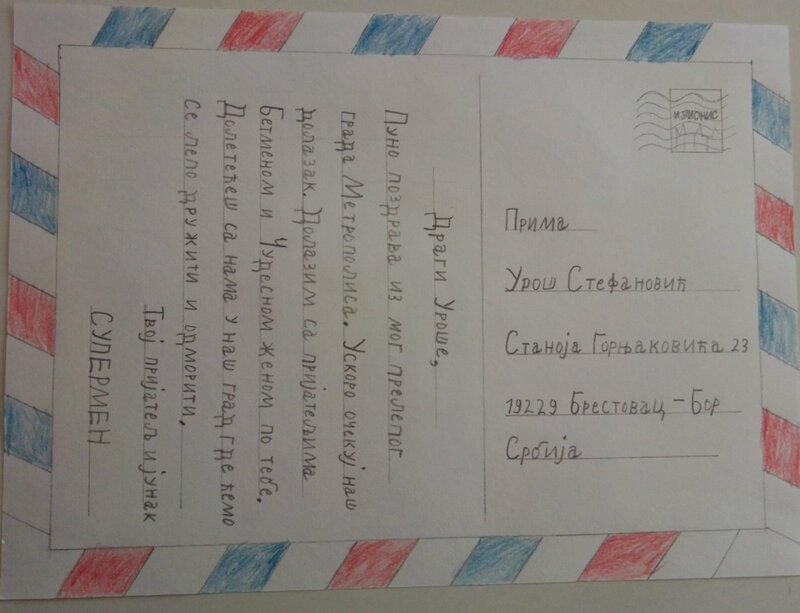 Драги Уроше,
Пуно поздрава из мог прелепог
града Метрополиса. Ускоро очекуј наш
долазак. Долазим са пријатељима
Бетменом и Чудесном женом по тебе.
Долетећеш са нама у наш град где ћемо
се лепо дружити и одморити.
Твој пријатељ и јунак
СУПЕРМЕН
Прима
Урош Стефановић
Станоја Горњаковића 23
19229 Брестовац - Бор
Србија